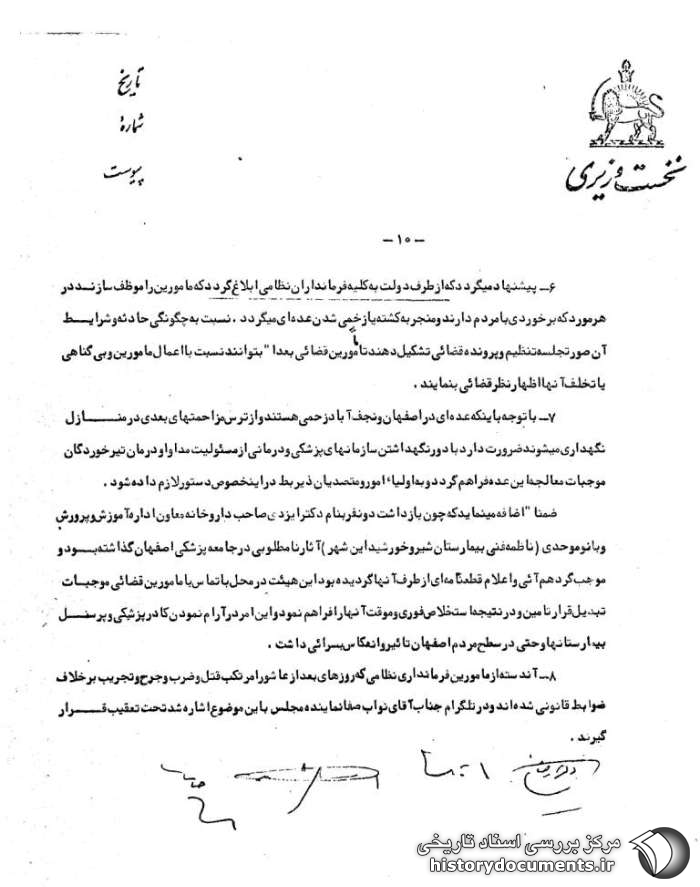 تاریخ
شمارهٔ
پیوست
نخست وزیری
– ۱۰ –
۶ـ پیشنهاد میگردد که از طرف دولت به کلیه فرمانداران نظامی ابلاغ گردد که مامورین را موظف سازند در
هر مورد که برخوردی با مردم دارند و منجر به کشته یا زخمی شدن عده ای میگردد . نسبت به چگونگی حادثه و شرایط
آن صورتجلسه تنظیم و پرونده قضائی تشکیل دهند تا مامورین قضائی بعدا" بتوانند نسبت با اعمال مامورین و بی گناهی
یا تخلف آنها اظهار نظر قضائی بنمایند .
۷ـ با توجه باینکه عده ای در اصفهان و نجف آباد زخمی هستند و از ترس مزاحمتهای بعدی در منازل
نگهداری میشوند ضرورت دارد با دور نگهداشتن سازمانهای پزشکی و درمانی از مسئولیت مداوا و درمان تیر خوردگان
موجبات معالجه این عده فراهم گردد و به اولیاء امور و متصدیان ذیربط در اینخصوص دستور لازم داده شود .
ضمنا" اضافه مینماید که چون بازداشت دو نفر بنام دکتر ایزدی صاحب داروخانه معاون اداره آموزش و پرورش
و بانو موحدی ( ناظمه فنی بیمارستان شیر و خورشید این شهر ) آثار نامطلوبی در جامعه پزشکی اصفهان گذاشته بود و
موجب گردهم آئی و اعلام قطعنامه ای از طرف آنها گردیده بود این هیئت در محل با تماس با مامورین قضائی موجبات
تبدیل قرار تامین و در نتیجه استخلاص فوری و موقت آنها را فراهم نمود و این امر در آرام نمودن کادر پزشکی و پرسنل
بیمارستانها و حتی در سطح مردم اصفهان تاثیر و انعکاس بسزائی داشت .
۸ـ آندسته از مامورین فرمانداری نظامی که روزهای بعد از عاشورا مرتکب قتل و ضرب و جرح و تخریب بر خلاف
ضوابط قانونی شده اند و در تلگرام جناب آقای نواب صفا نماینده مجلس باین موضوع اشاره شد تحت تعقیب قرار
گیرند .
مرکز بررسی اسناد تاریخی
historydocuments.ir